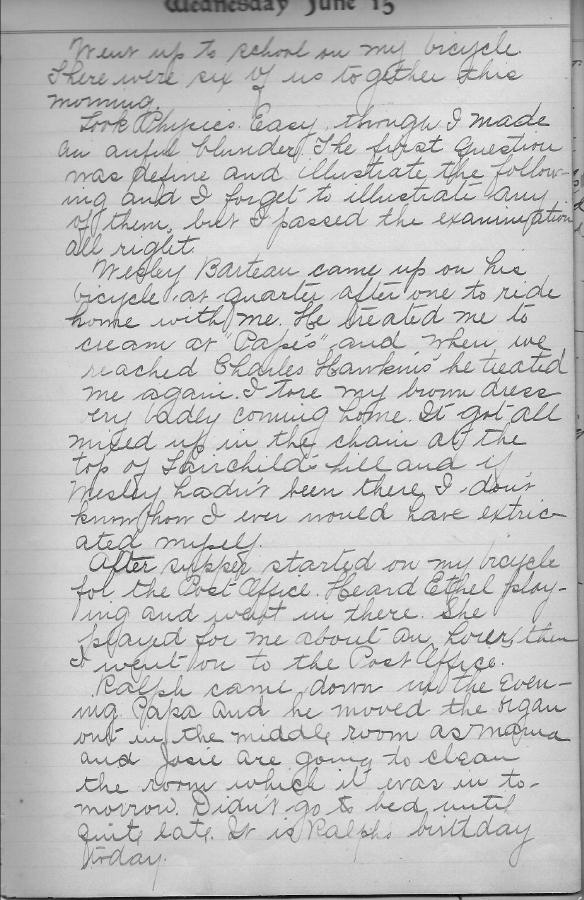 Wednesday June 15
Went up to school on my bicycle.
There were six of us together this
morning.
Took Physics. Easy, though I made
an awful blunder. The first question
was define and illustrate the follow-
ing and I forget to illustrate any
of them, but I passed the examination
all right.
Wesley Barteau came up on his
bicycle at quarter after one to ride
home with me. He treated me to
cream at "Papes" and when we
reached Charles Hawkins' he treated
me again. I tore my brown dress
very badly coming home. It got all
mixed up in the chain at the
top of Fairchild's hill and if
Wesley hadn't been there I don't
know how I ever would have extric-
ated myself.
After supper started on my bicycle
for the Post Office. Heard Ethel play-
ing and went in there. She
played for me about an hour, then
I went on to the Post Office.
Ralph came down in the even-
ing. Papa and he moved the organ
out in the middle room as Mama
and Josie are going to clean
the room which it was in to-
morrow. Didn't go to bed until
quite late. It is Ralph's birthday
today.